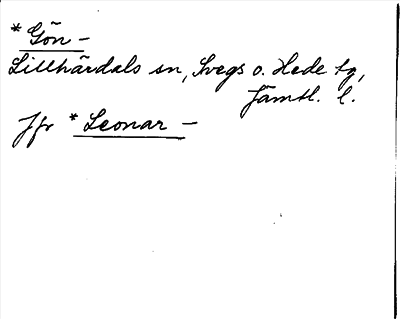 *Gön –
Lillhärdals sn, Svegs o. Hede tg,
Jämtl. l.
Jfr *Leonar –